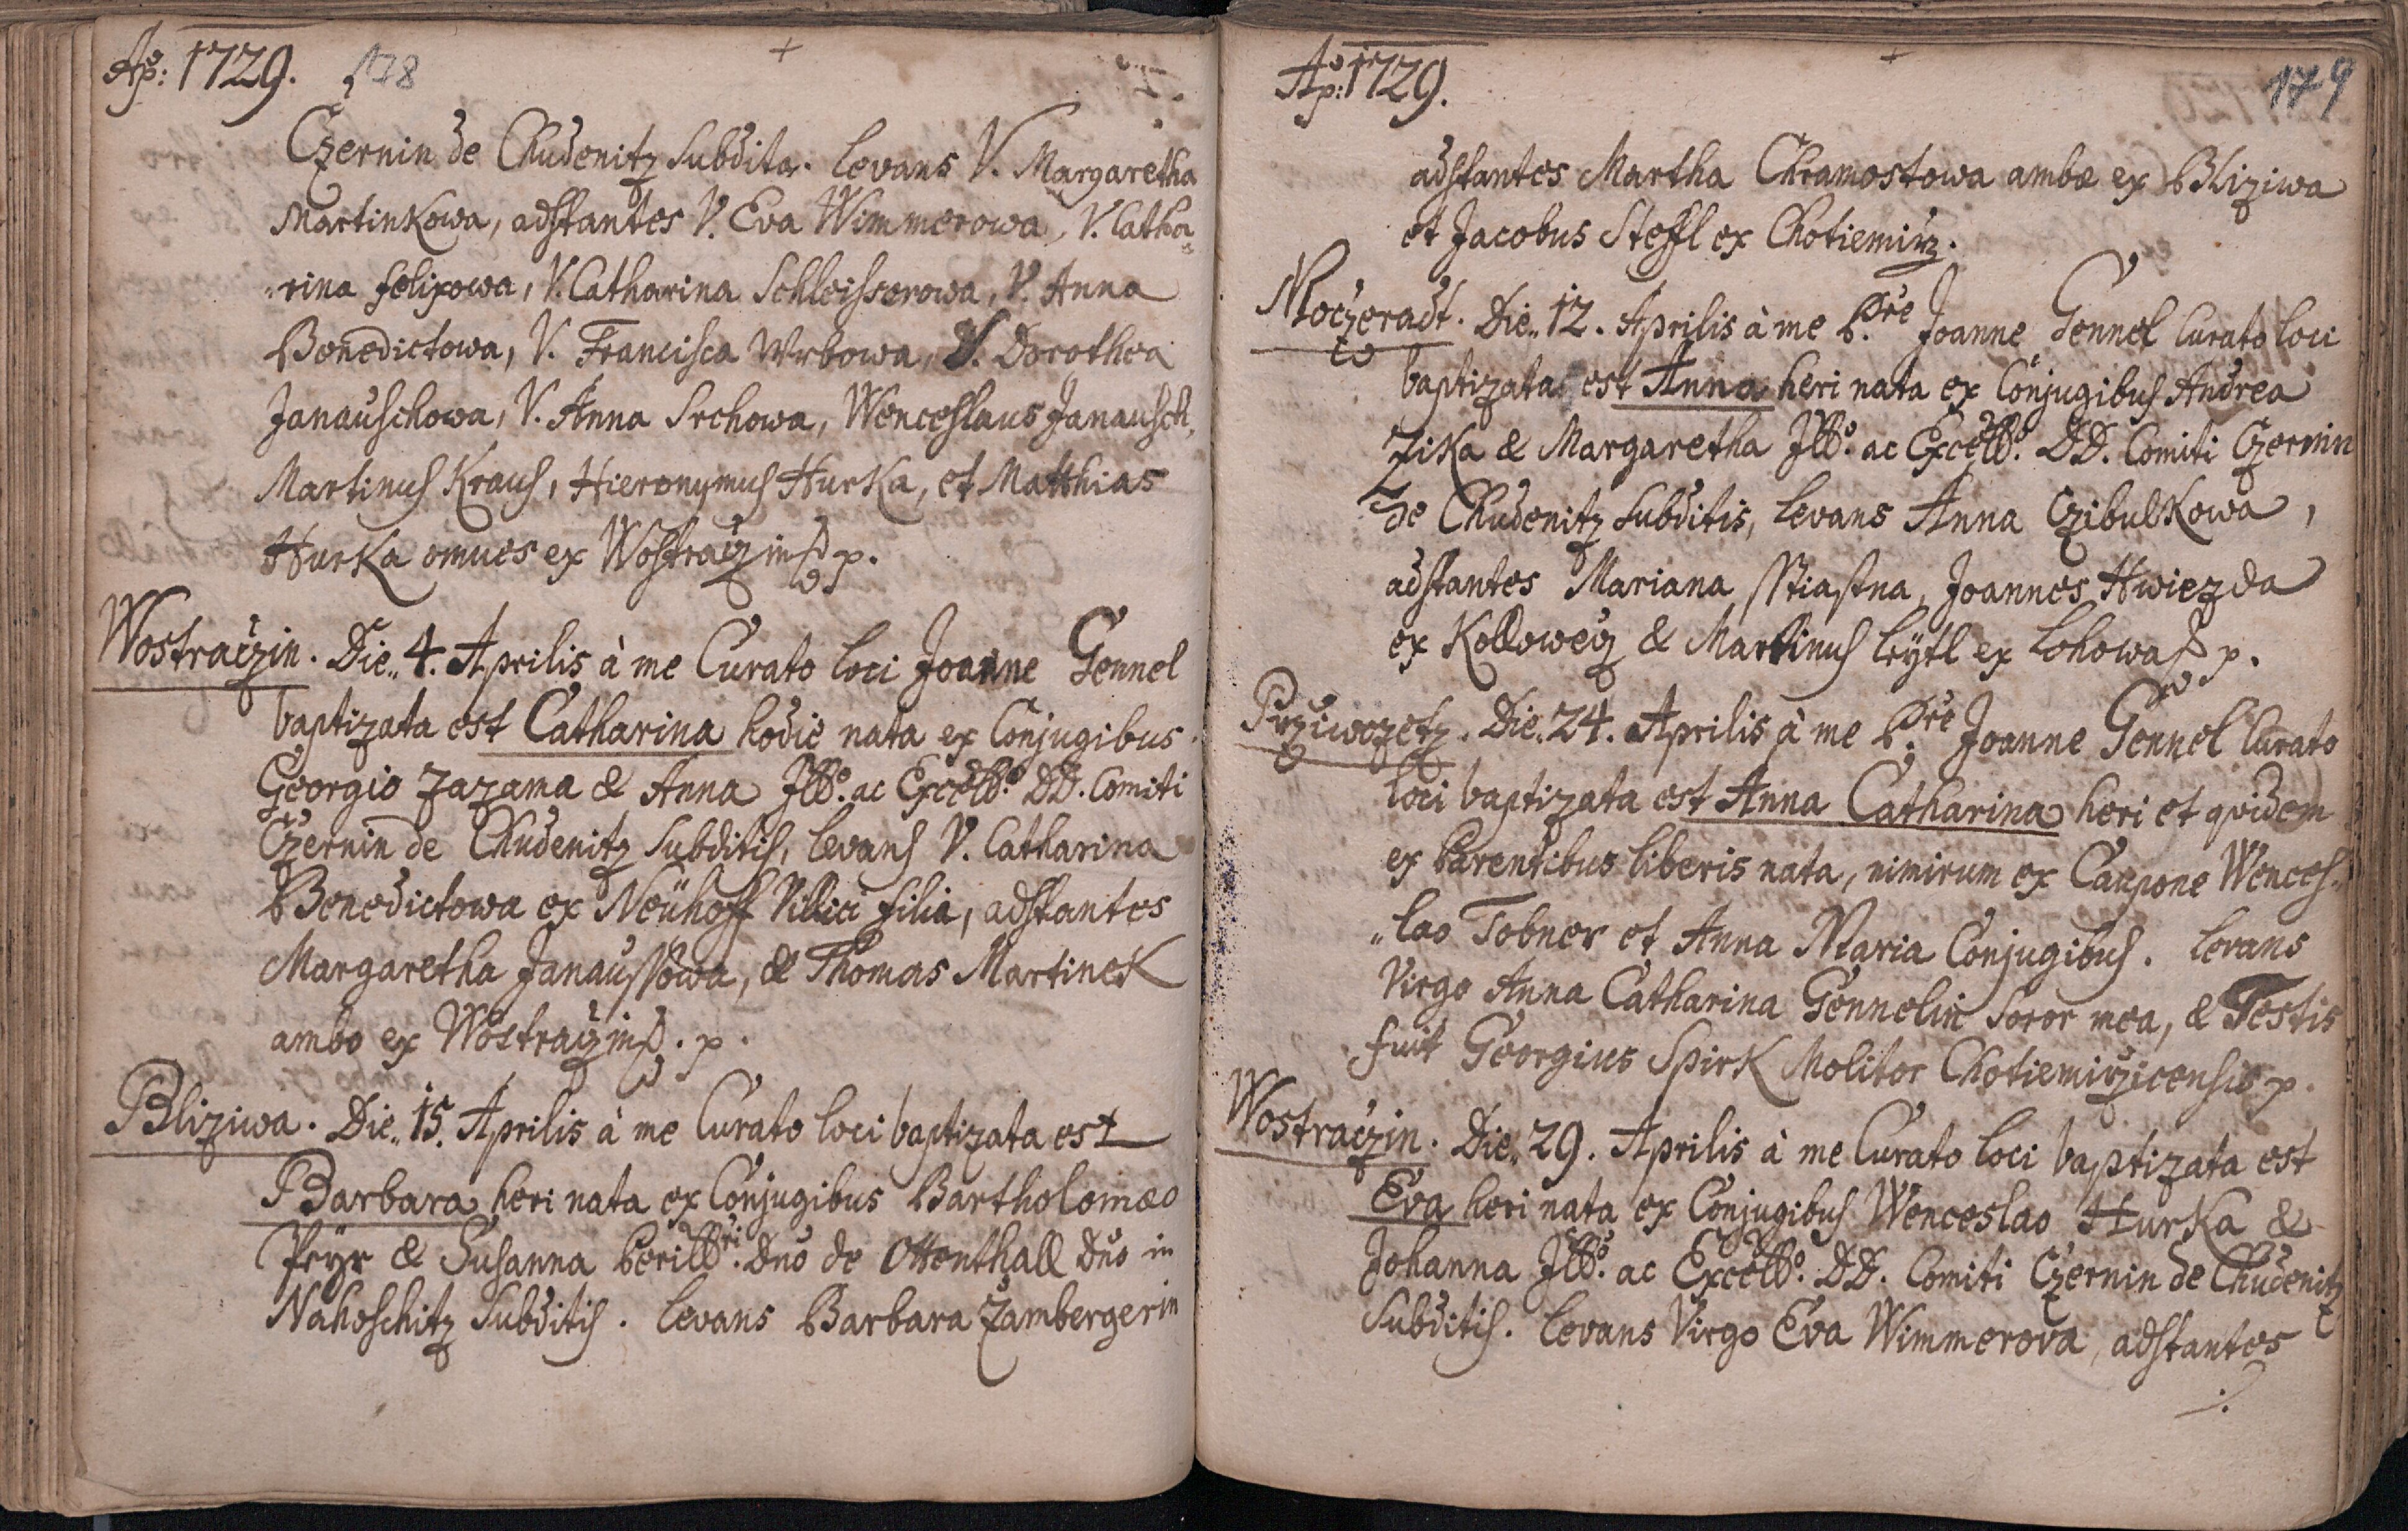 Aõ: 1729. 178
Czernin de Chudenitz Subdita. Levans V. Margaretha
Martinkowa, adstantes V. Eva Wimmerowa, V. Catha-
„rina Felixowa, V. Catharina Schleisserowa, V. Anna
Benedictowa, V. Francisca Wrbowa, V. Dorothea
Janauschowa, V. Anna Srchowa, Wenceslaus Janausch,
Martinus Kraus, Hieronymus Hurka, et Matthias
Hurka omnes ex Wostraczin p.
Wostraczin. Die„ 4. Aprilis à me Curato loci Joanne Gennel
baptizata est Catharina hodie nata ex Conjugibus
Georgio Zazama & Anna Illb̃o. ac Excellb̃o. DD. Comiti
Czernin de Chudenitz Subditis, levans V. Catharina
Benedictowa ex Neühoff Villici filia, adstantes
Margaretha Janaussowa, & Thomas Martinek
ambo ex Wostraczin p.
Bliziwa. Die„ 15. Aprilis à me Curato loci baptizata est
Barbara heri nata ex Conjugibus Bartholomæo
Peyr & Susanna Perillbri. Dño de Ottenthall Dño in
Nahoschitz Subditis. Levans Barbara Zambergerin
Aõ: 1729. 179
adstantes Martha Chramostowa ambæ ex Bliziwa
et Jacobus Steffl ex Chotiemirz.
Moczeradt. Die„ 12. Aprilis à me P.re Joanne Gennel Curato loci
baptizata est Anna heri nata ex Conjugibus Andrea
Zika & Margaretha Illb̃o. ac Excellb̃o. DD. Comiti Czernin
de Chudenitz Subditis, levans Anna Czibulkowa,
adstantes Mariana Stiastna, Joannes Hwiezda
ex Kollowecz & Martinus Leytl ex Lohowa p.
Przwozetz. Die„ 24. Aprilis à me P.re Joanne Gennel Curato
loci baptizata est Anna Catharina heri et quidem
ex Parentibus liberis nata, nimirum ex Caupone Wences-
„lao Tobner et Anna Maria Conjugibus. Levans
Virgo Anna Catharina Gennelin Soror mea, & Testis
fuit Georgius Spirk Molitor Chotiemirzicensis p.
Wostraczin. Die„ 29. Aprilis à me Curato loci baptizata est
Eva heri nata ex Conjugibus Wenceslao Hurka &
Johanna Illb̃o. ac Excellb̃o. DD. Comiti Czernin de Chudenitz
Subditis. Levans Virgo Eva Wimmerova, adstantes